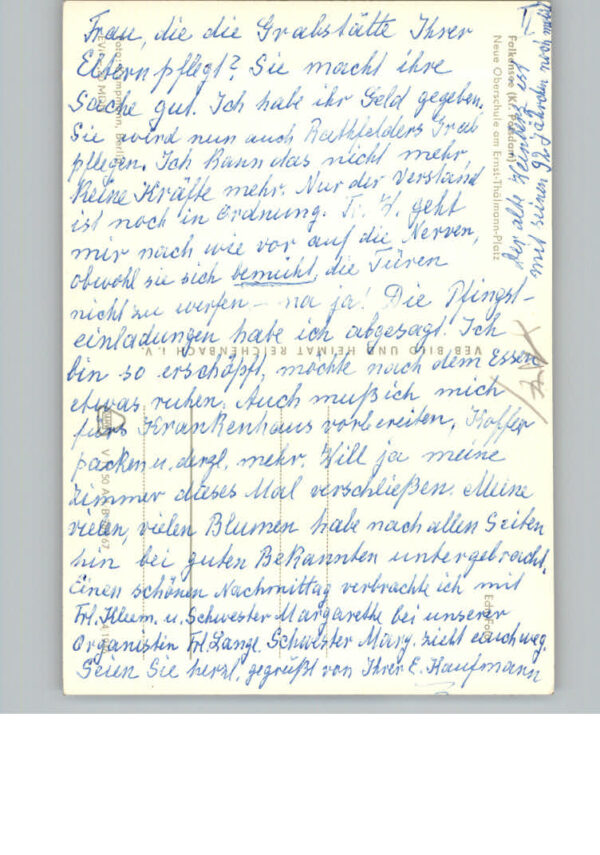 II
Frau, die die Grabstätte Ihrer
Eltern pflegt? Sie macht ihre
Sache gut. Ich habe ihr Geld gegeben.
Sie wird nun auch Rathfelders Grab
pflegen. Ich kann das nicht mehr,
keine Kräfte mehr. Nur der Verstand
ist noch in Ordnung. Fr. H. geht
mir nach wie vor auf die Nerven,
obwohl sie sich bemüht, die Türen
nicht zu werfen – na ja! Die Pfingst-
einladungen habe ich abgesagt. Ich
bin so erschöpft, möchte nach dem Essen
etwas ruhen. Auch muß ich mich
fürs Krankenhaus vorbereiten, Koffer
packen u. dergl. mehr. Will ja meine
Zimmer dieses Mal verschließen. Meine
vielen, vielen Blumen habe nach allen Seiten
hin bei guten Bekannten untergebracht.
Einen schönen Nachmittag verbrachte ich mit
Frl. Klem. u. Schwester Margarethe bei unserer
Organistin Frl. Lange. Schwester Marg. zieht auch weg.
Seien Sie herzl. gegrüßt von Ihrer E. Kaufmann
Falkensee (Kr. Potsdam)
Neue Oberschule am Ernst-Thälmann-Platz
VEB BILD UND HEIMAT REICHENBACH i. V.
Echt Foto